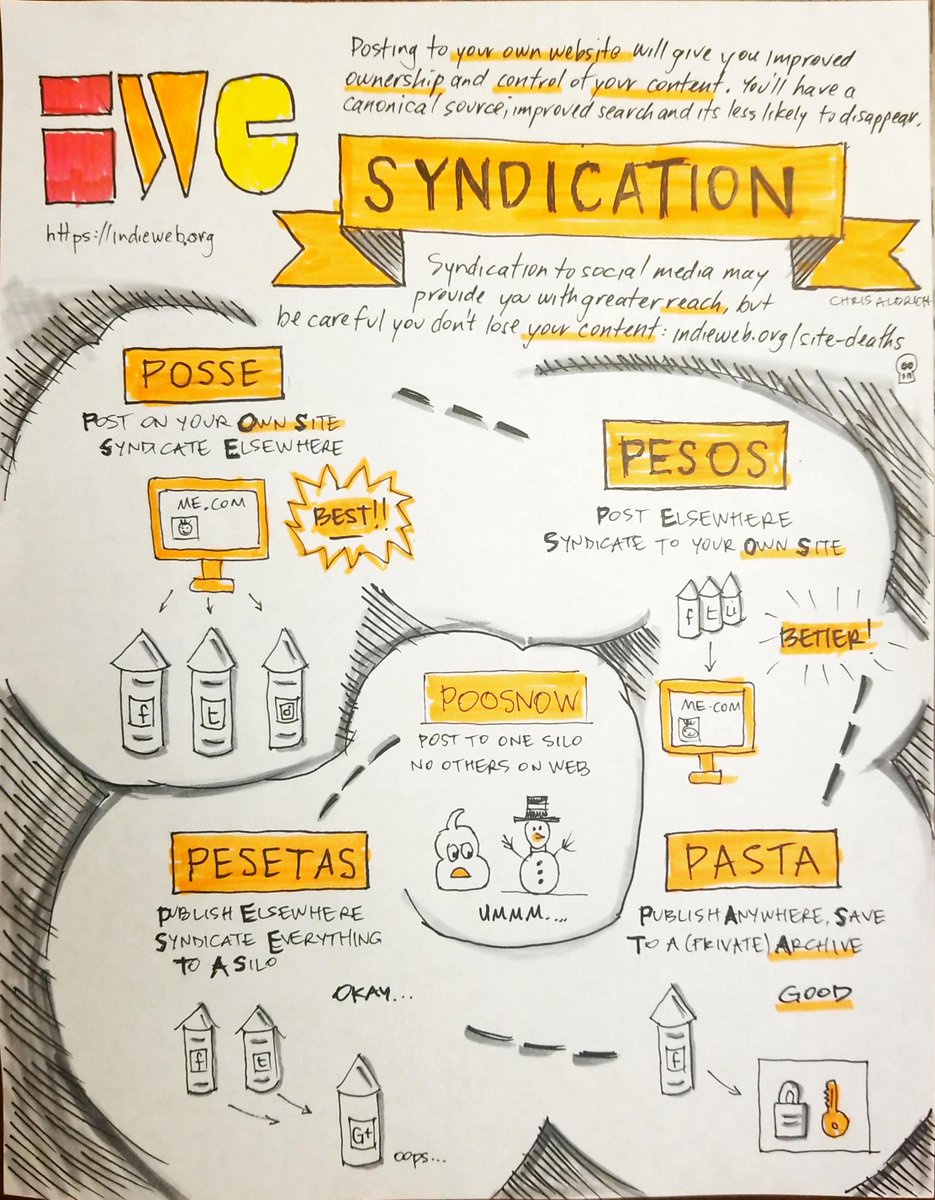 iwc
https://indieweb.org
Posting to your own website will give you improved
ownership and control of your content. You'll have a
canonical source, improved search and its less likely to disappear.
SYNDICATION
CHRIS ALDRICH
Syndication to social media may
provide you with greater reach, but
be careful you don't lose your content: indieweb.org/site-deaths
POSSE
POST ON YOUR OWN SITE
SYNDICATE ELSEWHERE
ME.COM
BEST!!
f t
PESOS
POST ELSEWHERE
SYNDICATE TO YOUR OWN SITE
f t u
BETTER!
ME.COM
POOSNOW
POST TO ONE SILO
NO OTHERS ON WEB
UMMM....
PESETAS
PUBLISH ELSEWHERE
SYNDICATE EVERYTHING
TO A SILO
OKAY...
f t
G+
oops...
PASTA
PUBLISH ANYWHERE, SAVE
TO A (PRIVATE) ARCHIVE
GOOD
f